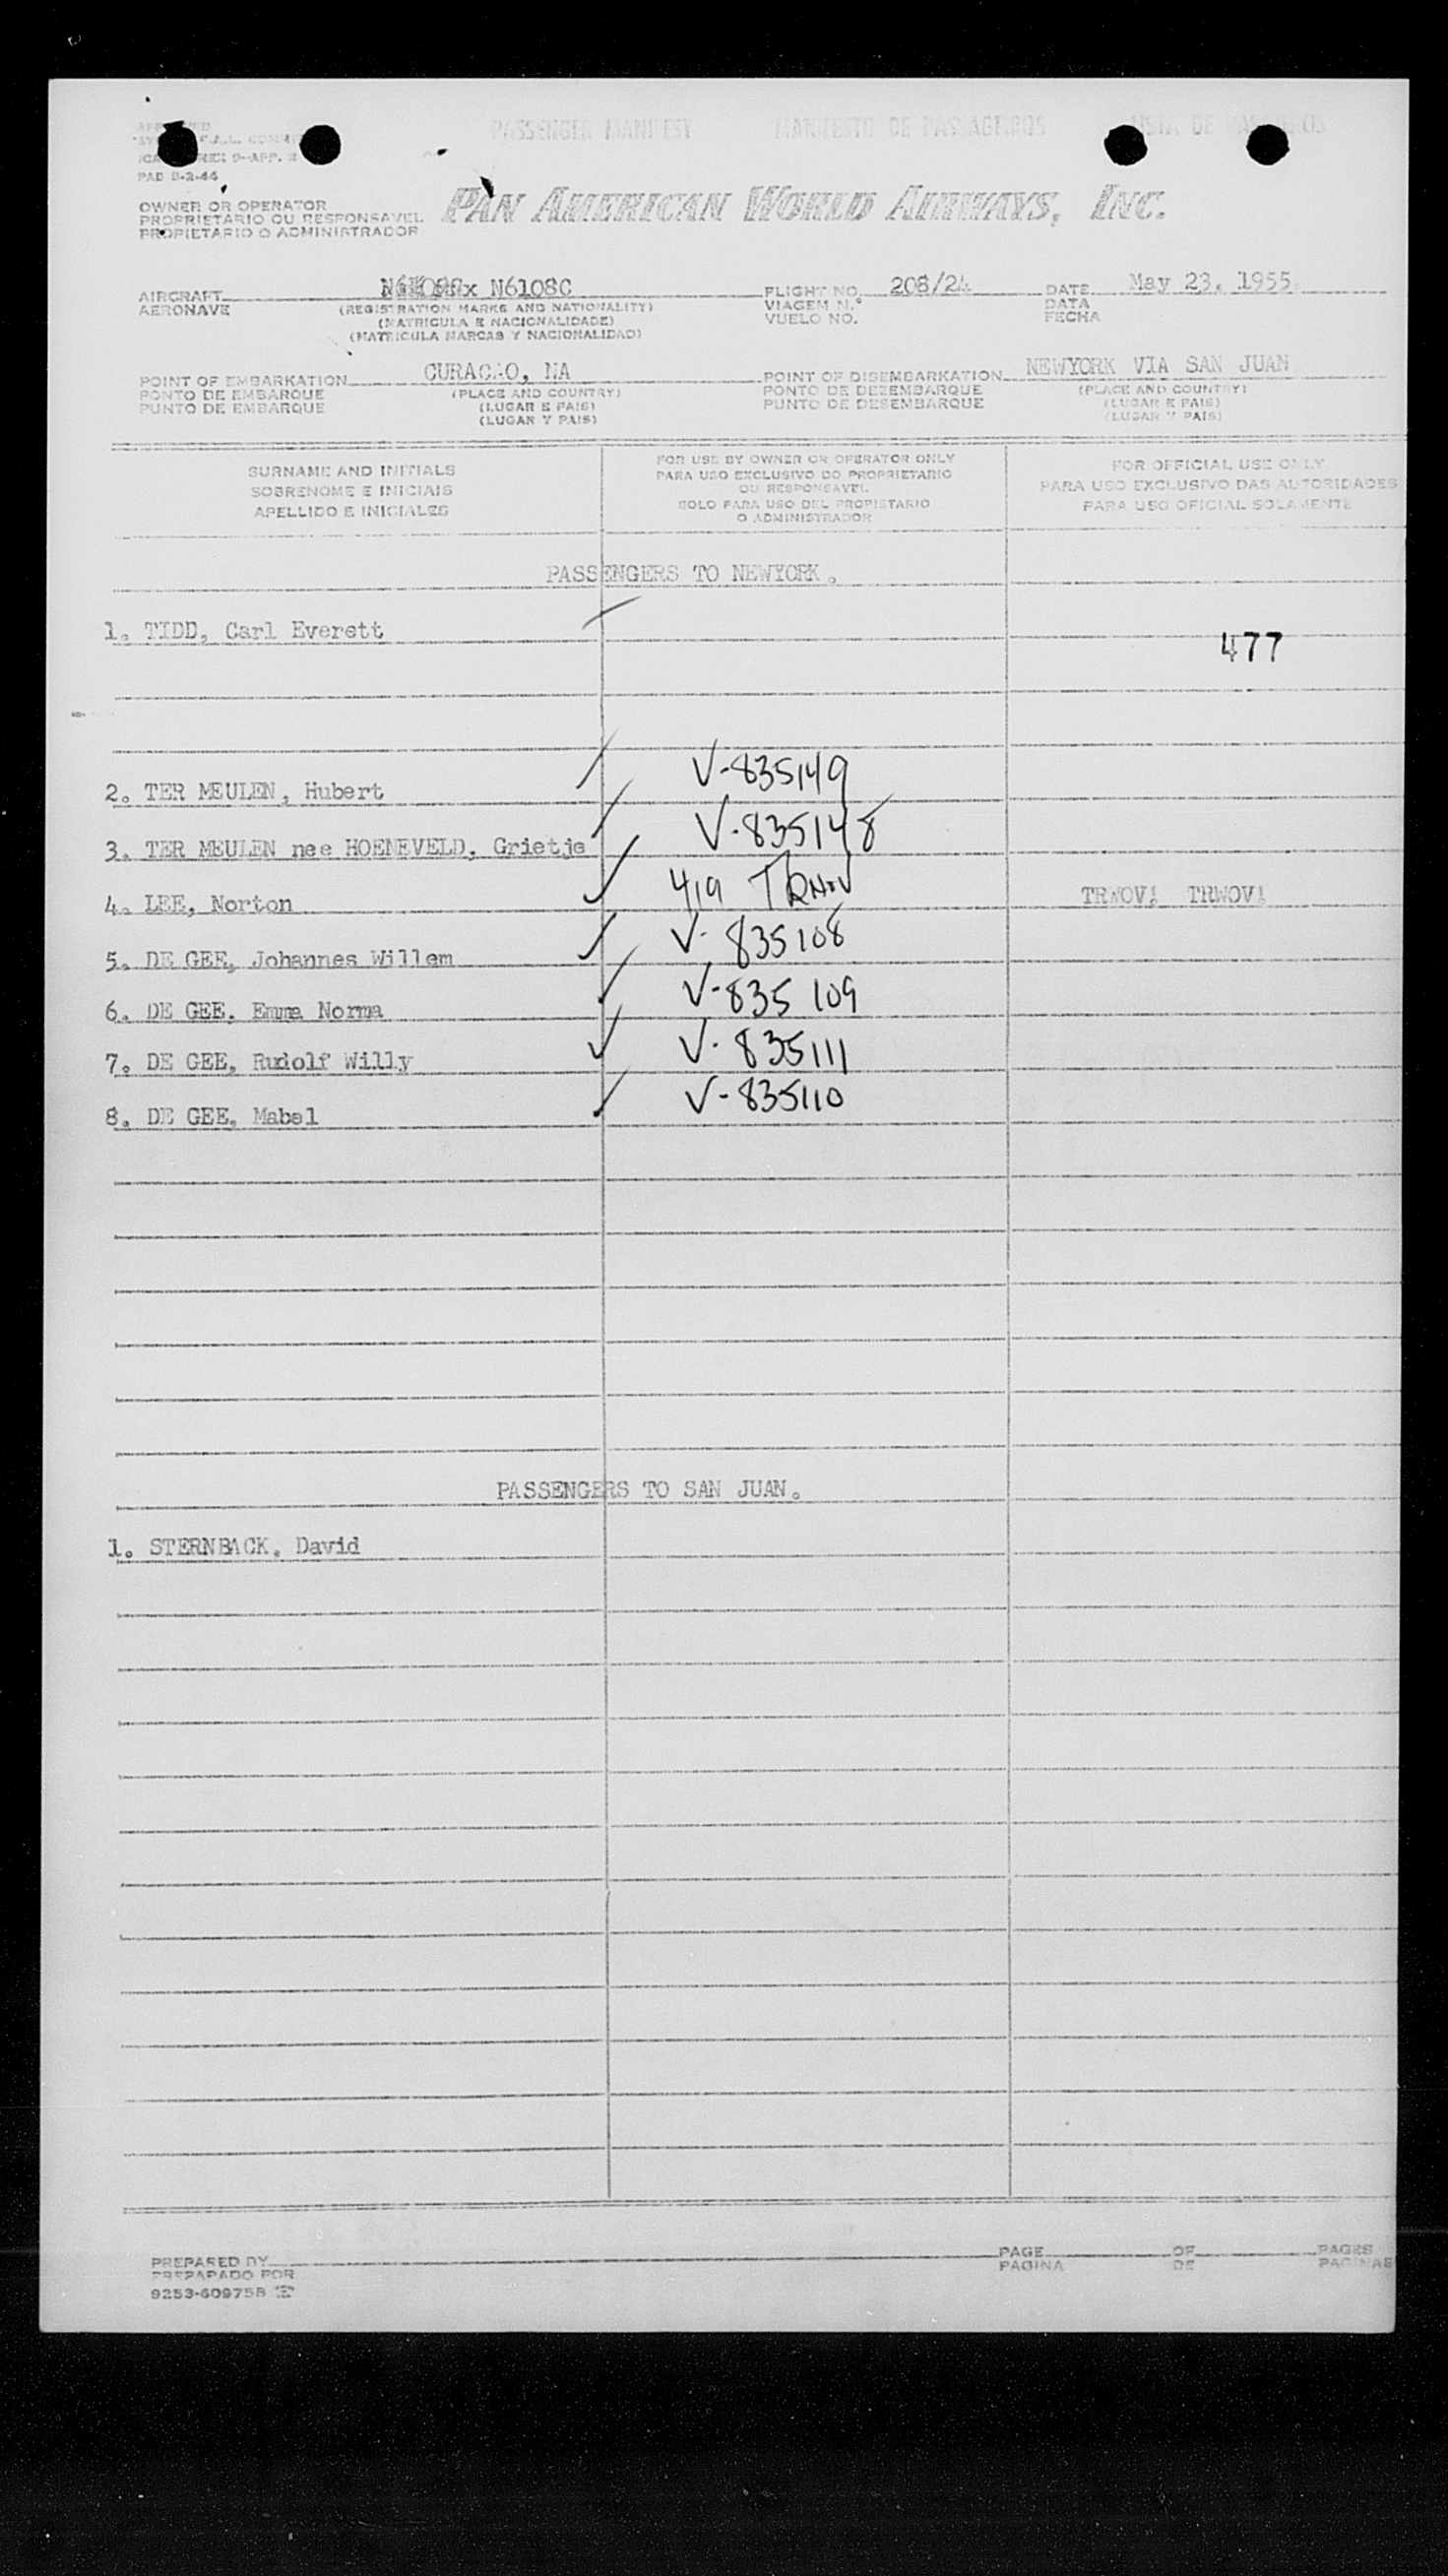 PASSENGER MANIFEST MANIFESTO DE PASAGEIROS LISTA DE
PAD 8-2-44
OWNER OR OPERATOR
PROPRIETARIO OU RESPONSAVEL
PROPIETARIO O ADMINISTRADOR
PAN AMERICAN WORLD AIRWAYS, INC.
AIRCRAFT N6108C FLIGHT NO. 208/24 DATE May 23, 1955
AERONAVE (REGISTRATION MARKS AND NATIONALITY) VIAGEM N.º DATA
(MATRICULA E NACIONALIDADE) VUELO NO. FECHA
(MATRICULA MARCAS Y NACIONALIDAD)
POINT OF EMBARKATION CURACAO, NA POINT OF DISEMBARKATION NEWYORK VIA SAN JUAN
PONTO DE EMBARQUE (PLACE AND COUNTRY) PONTO DE DESEMBARQUE (PLACE AND COUNTRY)
PUNTO DE EMBARQUE (LUGAR E PAIS) PUNTO DE DESEMBARQUE (LUGAR E PAIS)
(LUGAR Y PAIS) (LUGAR Y PAIS)
SURNAME AND INITIALS
SOBRENOME E INICIAIS
APELLIDO E INICIALES
FOR USE BY OWNER OR OPERATOR ONLY
PARA USO EXCLUSIVO DO PROPRIETARIO
OU RESPONSAVEL
SOLO PARA USO DEL PROPIETARIO
O ADMINISTRADOR
FOR OFFICIAL USE ONLY
PARA USO EXCLUSIVO DAS AUTORIDADES
PARA USO OFICIAL SOLAMENTE
PASSENGERS TO NEWYORK.
1. TIDD, Carl Everett
477
2. TER MEULEN, Hubert V-835149
3. TER MEULEN nee HOENEVELD, Grietje V-835148
4. LEE, Norton 419 TRWOV TRWOV! TRWOV!
5. DE GEE, Johannes Willem V-835108
6. DE GEE. Emma Norma V-835109
7. DE GEE, Rudolf Willy V-835111
8. DE GEE, Mabel V-835110
PASSENGERS TO SAN JUAN.
1. STERNBACK. David
PREPARED BY PAGE OF PAGES
PREPARADO POR PAGINA DE PAGINAS
9253-609758